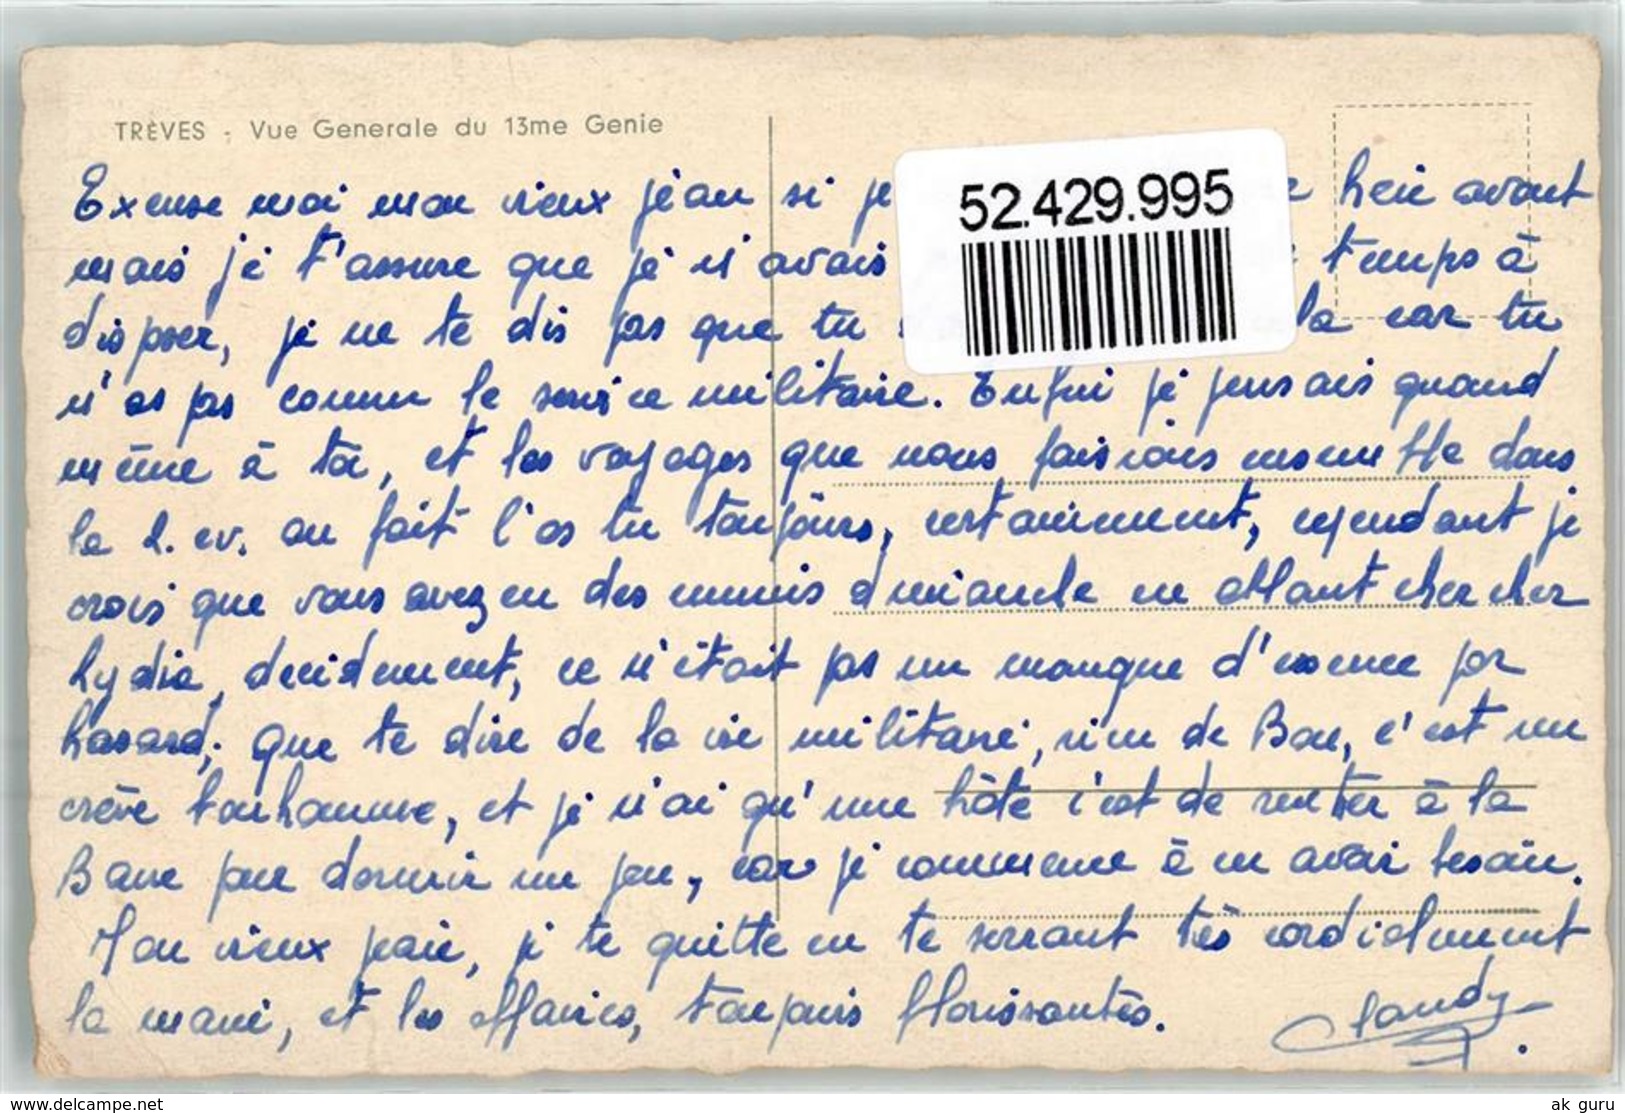 TRÈVES - Vue Generale du 13me Genie
52.429.995
Excuse moi mon vieux jéan si je avant
mais je t'assure que je n'avais temps à
disposer, je ne te dis pas que tu la car tu
n'as pas connu le service militaire. Enfin je pensais quand
même à toi, et les voyages que nous faisions ensemble dans
la 2.cv. au fait l'as tu toujours, certainement, cependant je
crois que vous avez eu des ennuis d'essence en allant chercher
lydia, decidement, ce n'était pas un manque d'essence par
hasard; que te dire de la vie militaire, rien de Bon, c'est un
crève bonhomme, et je n'ai qu'une hâte c'est de rentrer à la
Base pour dormir un peu, car je commence à en avoir besoin.
Mon vieux je te quitte en te serrant très cordialement
la main, et les affaires, toujours florissantes.
Claudy
www.delcampe.net
ak guru